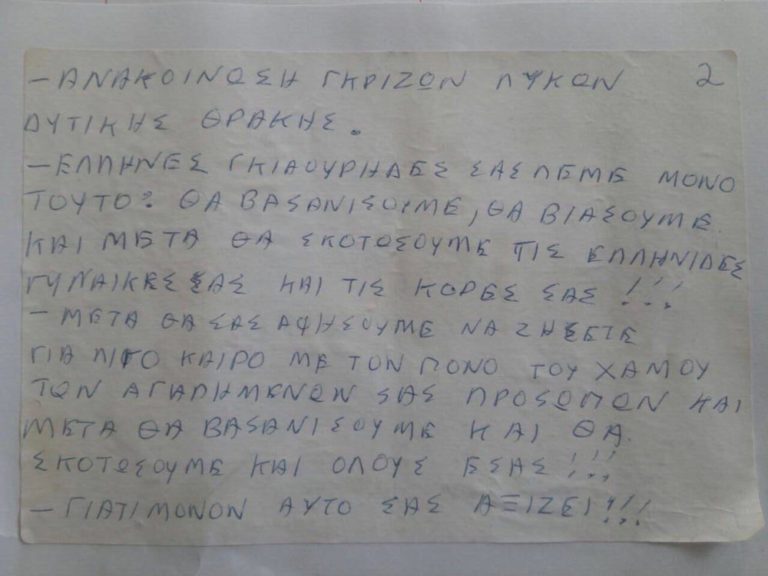 – ΑΝΑΚΟΙΝΩΣΗ ΓΚΡΙΖΩΝ ΛΥΚΩΝ 2
ΔΥΤΙΚΗΣ ΘΡΑΚΗΣ.
– ΕΛΛΗΝΕΣ ΓΚΙΑΟΥΡΗΔΕΣ ΣΑΣ ΛΕΜΕ ΜΟΝΟ
ΤΟΥΤΟ? ΘΑ ΒΑΣΑΝΙΣΟΥΜΕ, ΘΑ ΒΙΑΣΟΥΜΕ
ΚΑΙ ΜΕΤΑ ΘΑ ΣΚΟΤΩΣΟΥΜΕ ΤΙΣ ΕΛΛΗΝΙΔΕΣ
ΓΥΝΑΙΚΕΣ ΣΑΣ ΚΑΙ ΤΙΣ ΚΟΡΕΣ ΣΑΣ !!!
– ΜΕΤΑ ΘΑ ΣΑΣ ΑΦΗΣΟΥΜΕ ΝΑ ΖΗΣΕΤΕ
ΓΙΑ ΛΙΓΟ ΚΑΙΡΟ ΜΕ ΤΟΝ ΠΟΝΟ ΤΟΥ ΧΑΜΟΥ
ΤΩΝ ΑΓΑΠΗΜΕΝΩΝ ΣΑΣ ΠΡΟΣΩΠΩΝ ΚΑΙ
ΜΕΤΑ ΘΑ ΒΑΣΑΝΙΣΟΥΜΕ ΚΑΙ ΘΑ
ΣΚΟΤΩΣΟΥΜΕ ΚΑΙ ΟΛΟΥΣ ΕΣΑΣ !!!
– ΓΙΑΤΙ ΜΟΝΟΝ ΑΥΤΟ ΣΑΣ ΑΞΙΖΕΙ !!!